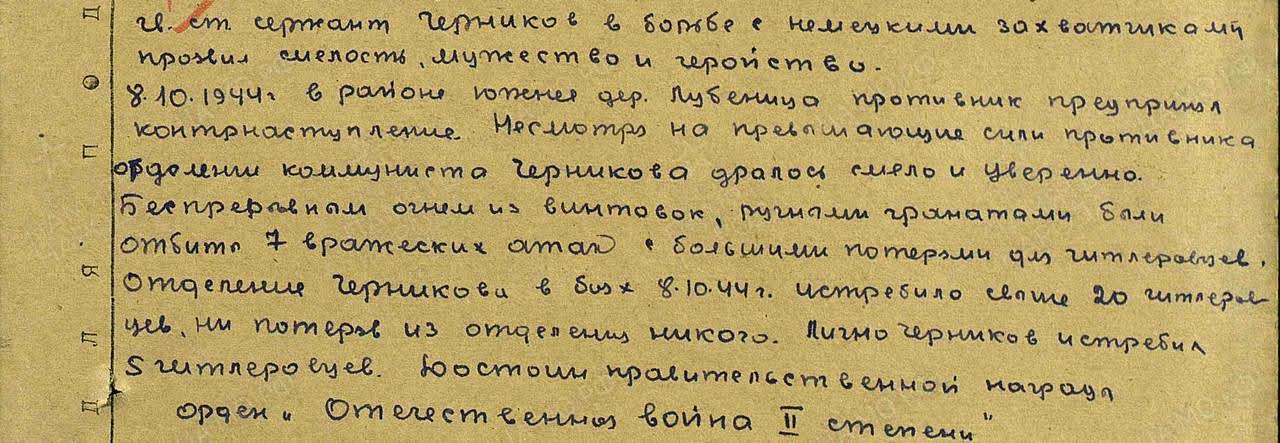 гв. ст. сержант Черников в борьбе с немецкими захватчиками
проявил смелость, мужество и геройство.
8.10.1944г в районе южнее дер. Лубеница противник предпринял
контрнаступление. Несмотря на превышающие сили противника
отделении коммуниста Черникова дралось смело и уверенно.
Беспрерывным огнем из винтовок, ручными гранатами были
отбиты 7 вражеских атак с большими потерями для гитлеровцев.
Отделение Черникова в боях 8.10.44г. истребило свыше 20 гитлеров-
цев, ни потеряв из отделения никого. Лично Черников истребил
5 гитлеровцев. Достоин правительственной награды
орден „Отечественная война II степени"
Д О П Я Л Д